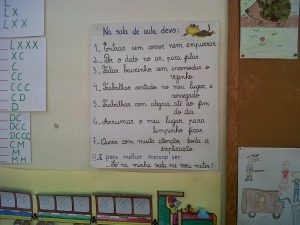 LX
LXXX
XC
C
CC
CCC
CD
D
DC
DCC
DCCC
CM
M
Na sala de aula, devo:
1_ Entrar sem correr nem empurrar
2_ Pôr o dedo no ar, para falar
3_ Falar baixinho sem incomodar o
vizinho
4_ Trabalhar sentado no meu lugar, e
sossegado
5_ Trabalhar com alegria, até ao fim
do dia
6_ Arrumar o meu lugar para
limpinho ficar
7_ Ouvir com muita atenção, toda a
explicação
E para melhor menino ser
_ Só na minha vida me vou meter!